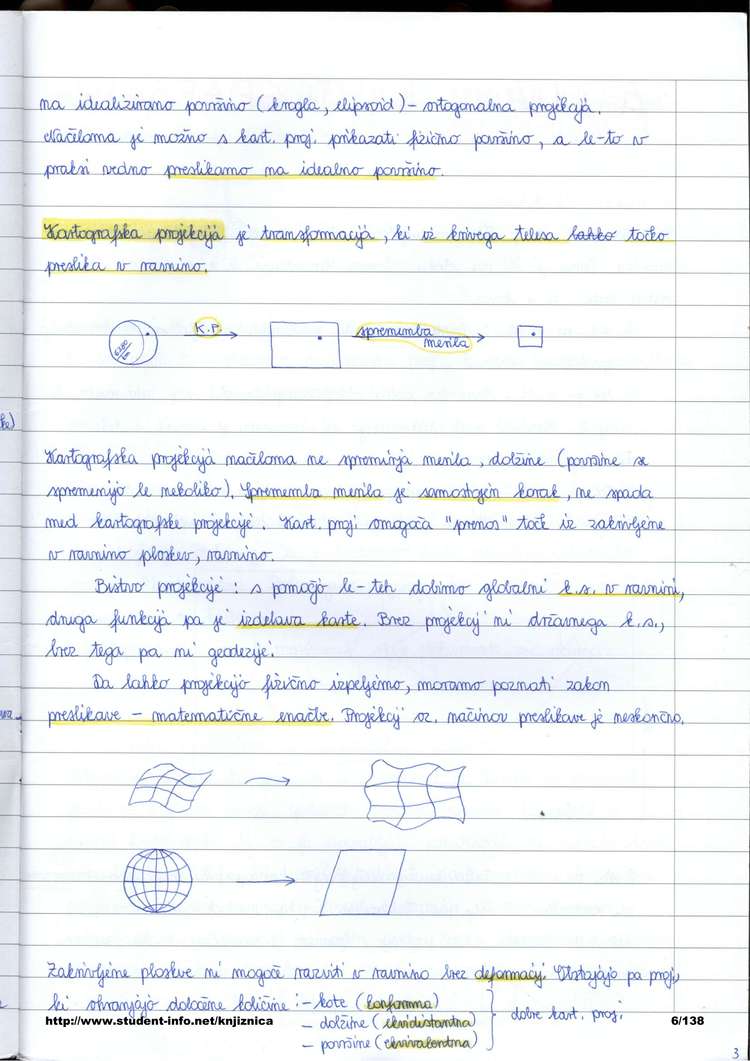 na idealizirano površino (krogla, elipsoid) - ortogonalna projekcija.
Načeloma je možno s kart. proj. prikazati fizično površino, a le-to v
praksi vedno preslikamo na idealno površino.
Kartografska projekcija je transformacija, ki iz krivega telesa lahko točko
preslika v ravnino.
K.P.
sprememba
merila
6380
km
Kartografska projekcija načeloma ne spreminja merila, dolžine (površine se
spremenijo le nekoliko). Sprememba merila je samostojen korak, ne spada
med kartografske projekcije. Kart. proj. omogoča "prenos" točk iz zakrivljene
v ravnino ploskev, ravnino.
Bistvo projekcije: s pomočjo le-teh dobimo globalni k.s. v ravnini,
druga funkcija pa je izdelava karte. Brez projekcij ni državnega k.s.,
brez tega pa ni geodezije.
Da lahko projekcijo fizično izpeljemo, moramo poznati zakon
preslikave - matematične enačbe. Projekcij oz. načinov preslikave je neskončno.
Zakrivljene ploskve ni mogoče razviti v ravnino brez deformacij. Obstajajo pa proj.,
ki ohranjajo določene količine: - kote (konformna)
- dolžine (ekvidistantna)
- površine (ekvivalentna)
dobre kart. proj.
http://www.student-info.net/knjiznica
6/138
3